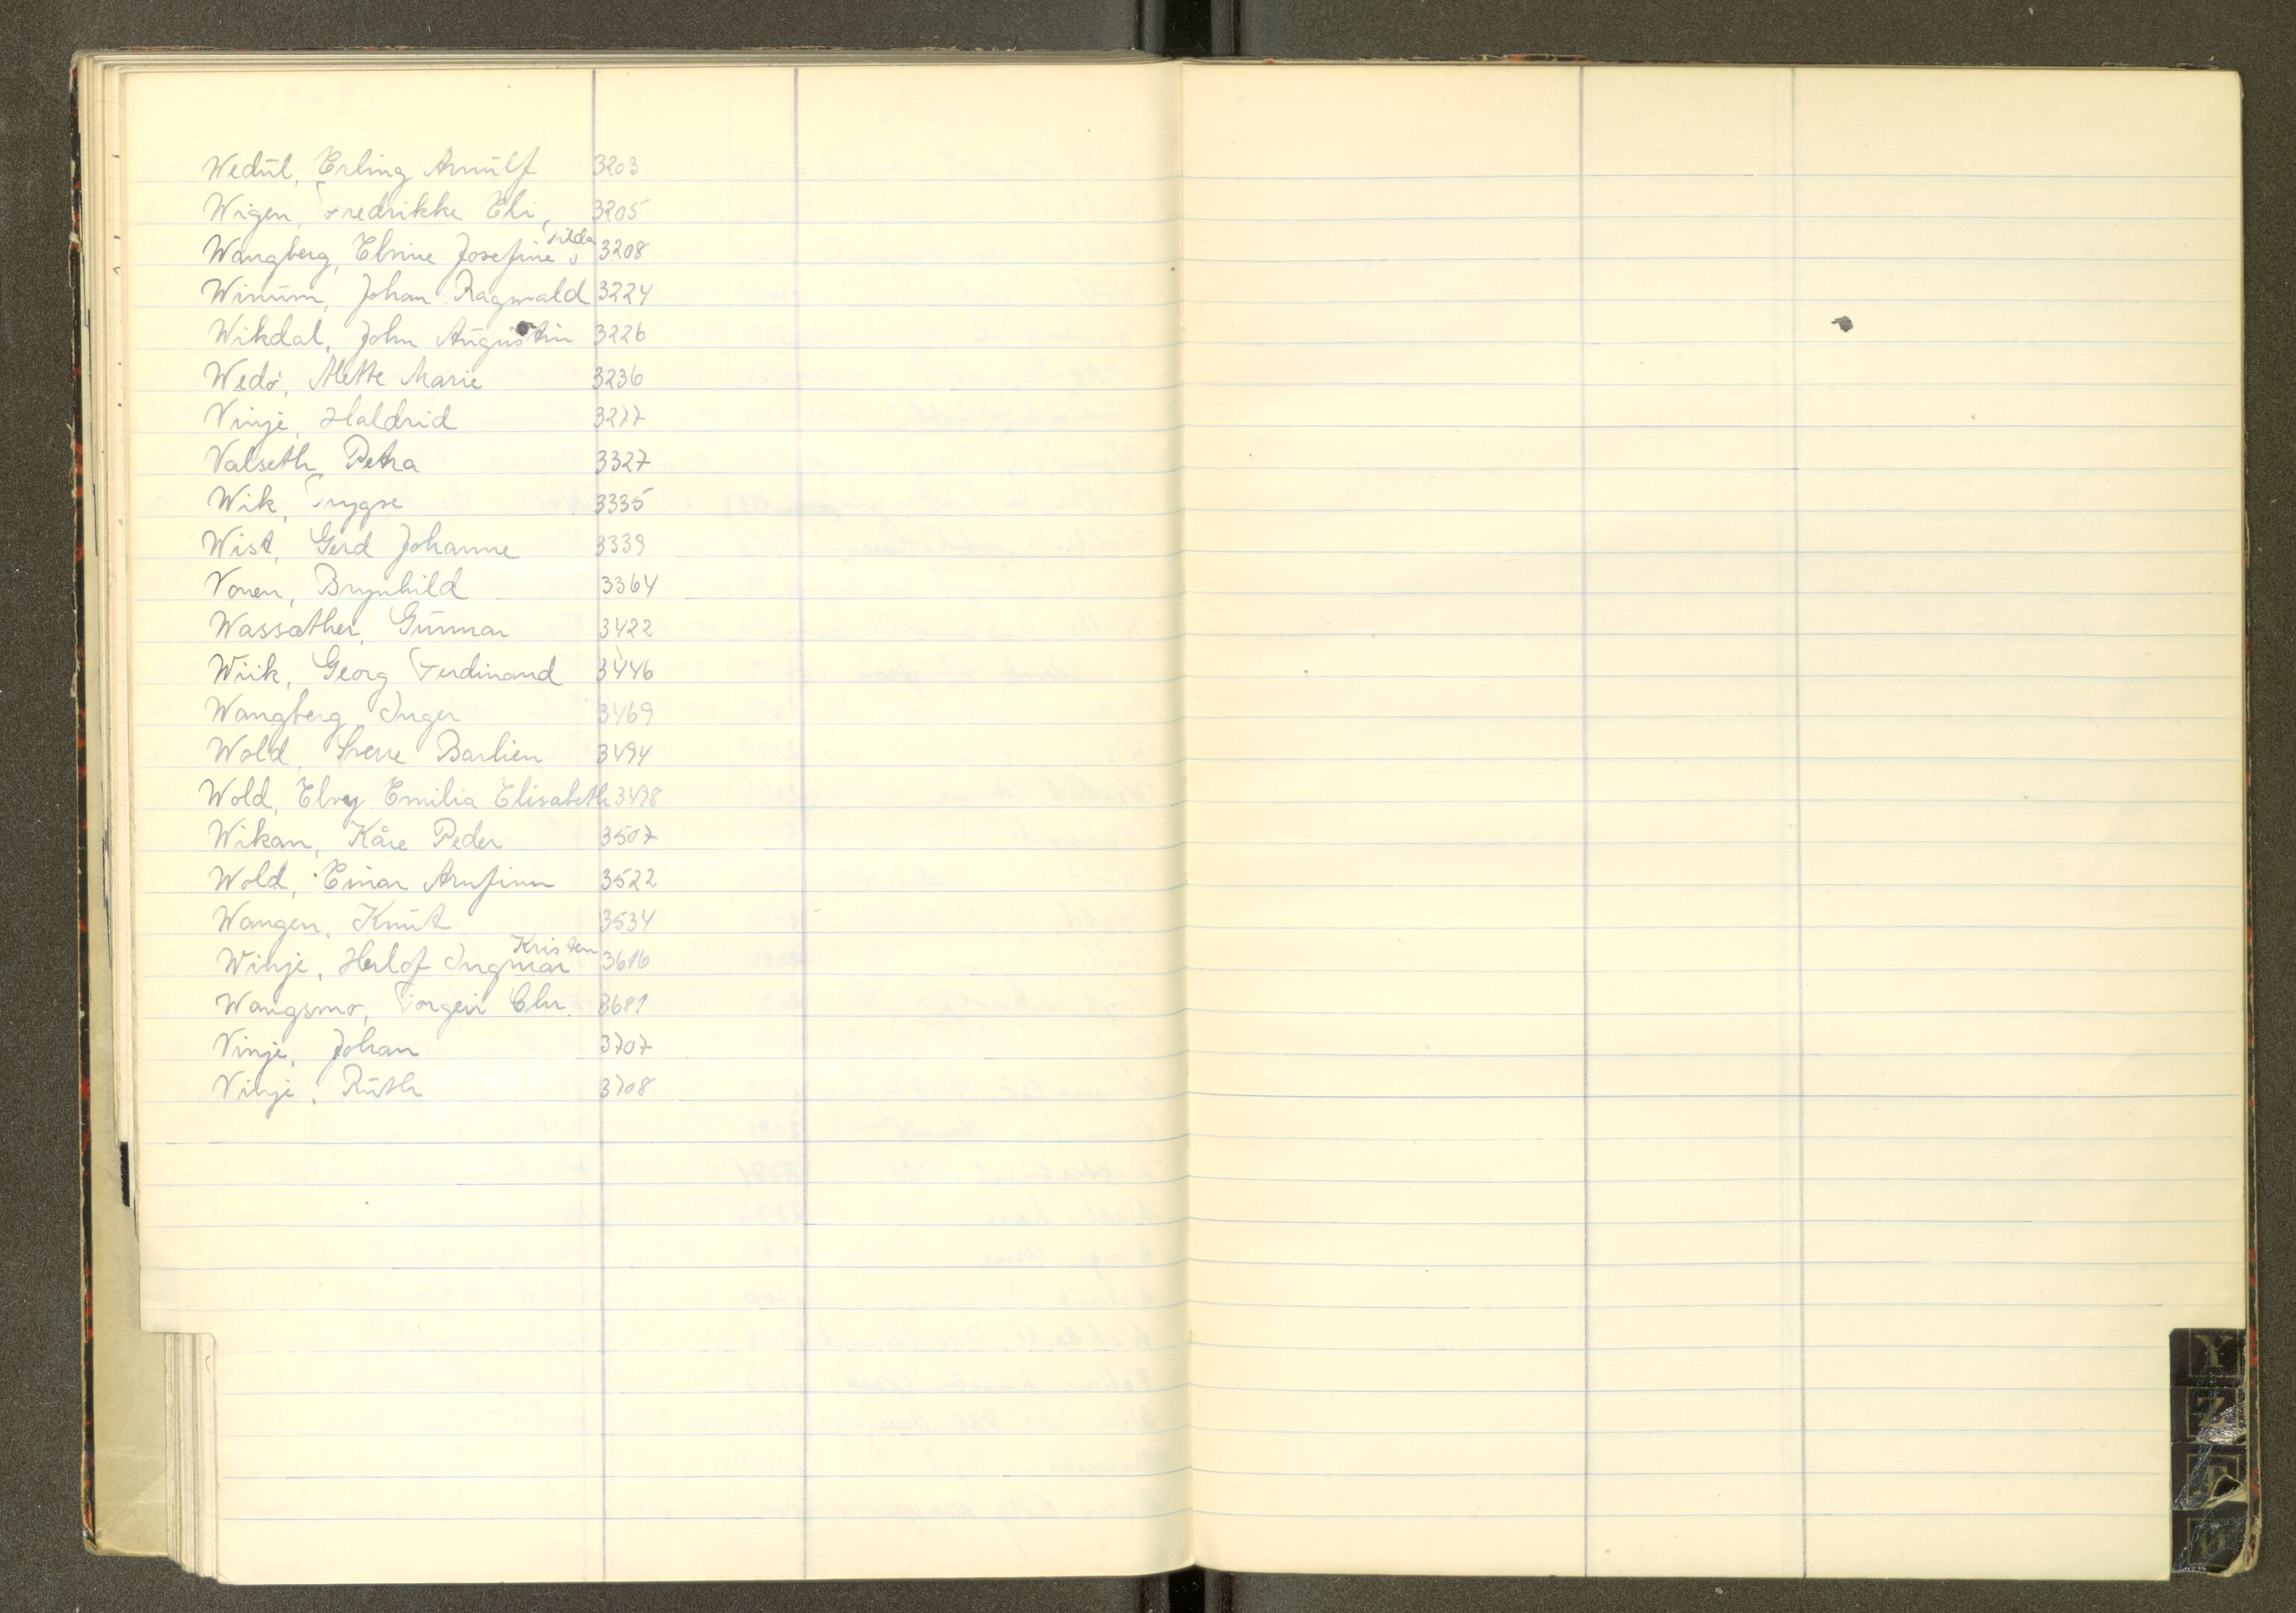 Wedul, Erling Arnulf 3203
Wigen, Fredrikke Eli, 3205
Wangberg, Elvine Josefine Tilda 3208
Winum, Johan Ragnvald 3224
Wikdal, John Augustin 3226
Wedø, Alette Marie 3236
Vinje, Haldrid 3277
Valseth, Petra 3327
Wik, Trygve 3335
Wist, Gerd Johanne 3339
Vonen, Brynhild 3364
Wassæther, Gunnar 3422
Wiik, Georg Ferdinand 3446
Wangberg, Inger 3469
Wold, Sverre Barlien 3494
Wold, Elvy Emilia Elisabeth 3498
Wikan, Kåre Peder 3507
Wold, Einar Arnfinn 3522
Wangen, Knut 3534
Winje, Herlof Ingmar Kristen 3616
Wangsmo, Torgeir Chr. 3681
Vinje, Johan 3707
Vinje, Ruth 3708
Y
Z
Æ
Ø